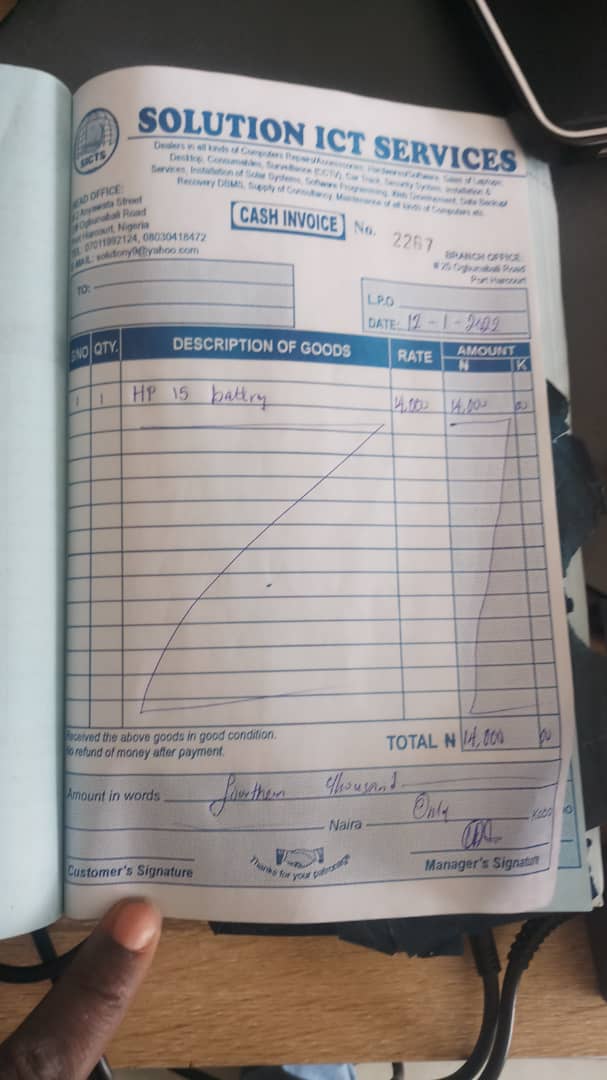 SOLUTION ICT SERVICES
SICTS
Dealers in all kinds of Computers Repairs/Accessories, Hardware/Software, Sales of Laptops
Desktop, Consumables, Surveillance (CCTV), Car Track, Security System, Installation &
Services, Installation of Solar Systems, Software Programming, Web Development, Data Backup
Recovery DBMS, Supply of Consultancy, Maintenance of all kinds of Computers etc.
HEAD OFFICE:
Street
Ogbunabali Road
Harcourt, Nigeria
07011992124, 08030418472
solutiony9@yahoo.com
CASH INVOICE No. 2267
BRANCH OFFICE:
# 25 Ogbunabali Road
Port Harcourt
TO:
L.P.O
DATE: 12 - 1 - 2022
S/NO QTY. DESCRIPTION OF GOODS RATE AMOUNT
N K
1 1 HP 15 battry 14,000 14,000 00
Received the above goods in good condition.
No refund of money after payment.
TOTAL N 14,000 00
Amount in words fourthen thousand
Naira Only Kobo
Customer's Signature Thanks for your patronage Manager's Signature